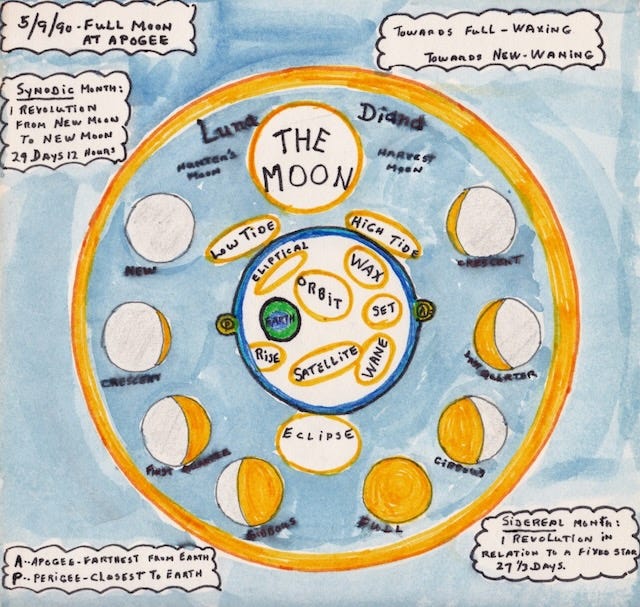 5/9/90-FULL MOON
AT APOGEE
TOWARDS FULL-WAXING
TOWARDS NEW-WANING
SYNODIC MONTH:
1 REVOLUTION
FROM NEW MOON
TO NEW MOON
29 DAYS 12 HOURS
Luna
Diana
THE
MOON
HUNTER'S
MOON
HARVEST
MOON
LOW TIDE
HIGH TIDE
NEW
CRESCENT
ELIPTICAL
ORBIT
WAX
SET
EARTH
P
A
RISE
SATELLITE
WANE
CRESCENT
QUARTER
FIRST QUARTER
ECLIPSE
GIBBOUS
GIBBOUS
FULL
A--APOGEE-FARTHEST FROM EARTH
P--PERIGEE-CLOSEST TO EARTH
SIDEREAL MONTH:
1 REVOLUTION IN
RELATION TO A FIXED STAR
27 1/3 DAYS.